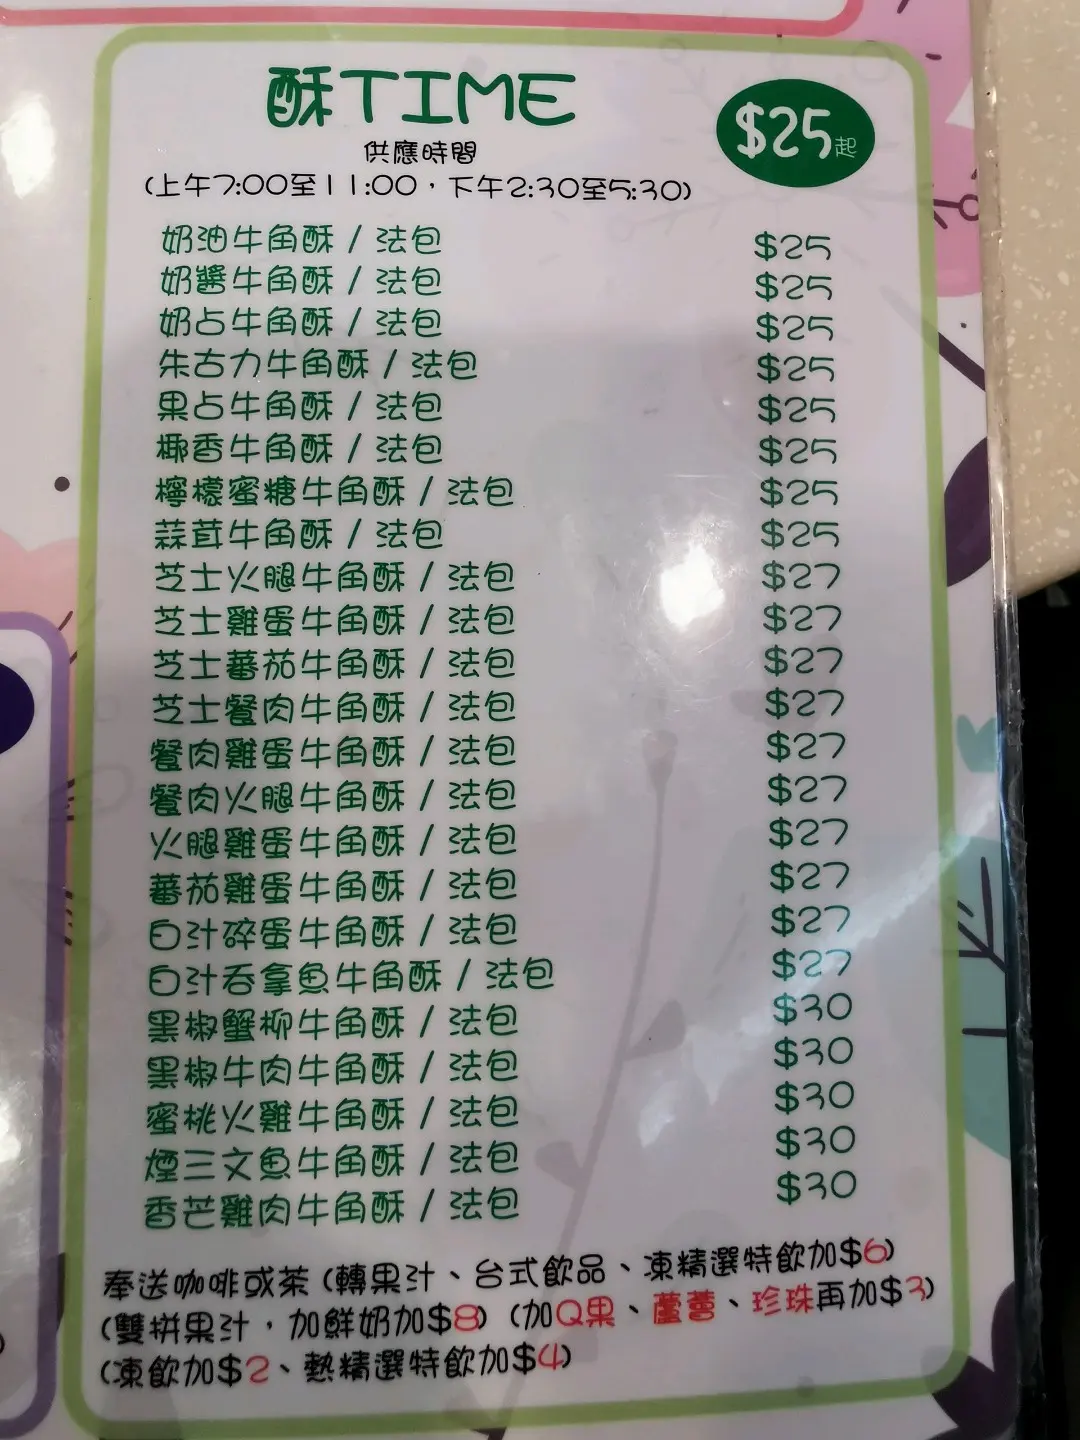 酥TIME
$25起
供應時間
(上午7:00至11:00，下午2:30至5:30)
奶油牛角酥 / 法包 $25
奶醬牛角酥 / 法包 $25
奶占牛角酥 / 法包 $25
朱古力牛角酥 / 法包 $25
果占牛角酥 / 法包 $25
椰香牛角酥 / 法包 $25
檸檬蜜糖牛角酥 / 法包 $25
蒜茸牛角酥 / 法包 $25
芝士火腿牛角酥 / 法包 $27
芝士雞蛋牛角酥 / 法包 $27
芝士蕃茄牛角酥 / 法包 $27
芝士餐肉牛角酥 / 法包 $27
餐肉雞蛋牛角酥 / 法包 $27
餐肉火腿牛角酥 / 法包 $27
火腿雞蛋牛角酥 / 法包 $27
蕃茄雞蛋牛角酥 / 法包 $27
白汁碎蛋牛角酥 / 法包 $27
白汁吞拿魚牛角酥 / 法包 $27
黑椒蟹柳牛角酥 / 法包 $30
黑椒牛肉牛角酥 / 法包 $30
蜜桃火雞牛角酥 / 法包 $30
煙三文魚牛角酥 / 法包 $30
香芒雞肉牛角酥 / 法包 $30
奉送咖啡或茶 (轉果汁、台式飲品、凍精選特飲加$6)
(雙拼果汁，加鮮奶加$8) (加Q果、蘆薈、珍珠再加$3)
(凍飲加$2、熱精選特飲加$4)